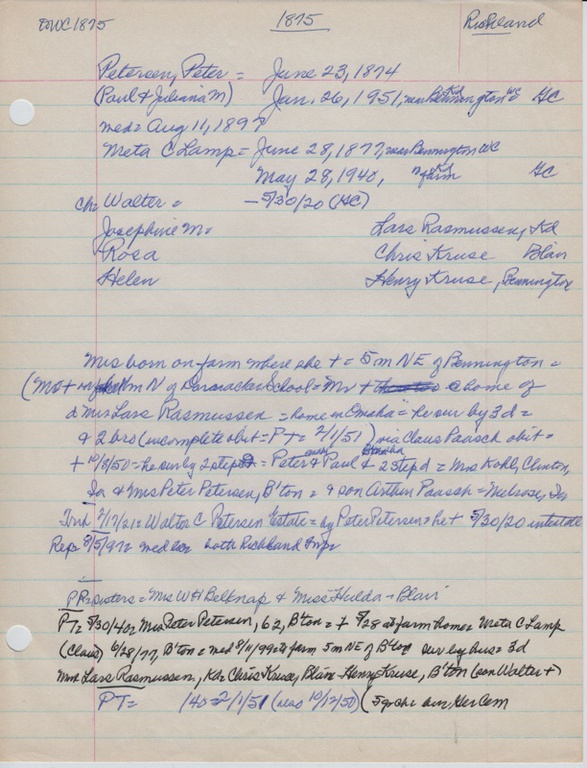 DWC1875 1875 Richland
Petersen, Peter = June 23, 1874
(Paul & Juliana M) Jan. 26, 1951, near Bennington HC
med = Aug 11, 1899
Meta C Lamp = June 28, 1877, near Bennington WC
May 28, 1940, farm HC
ch = Walter = - 5/30/20 (HC)
Josephine M = Lars Rasmussen, Kd
Rosa Chris Kruse Blair
Helen Henry Kruse, Bennington
Mrs born on farm where she + = 5 m NE of Bennington =
m N of School = Mr + @ home of
d Mrs Lars Rasmussen = home in Omaha = he sur by 3 d =
& 2 bros (incomplete obit = PT = 2/1/51) via Claus Paasch obit =
+ 10/8/50 = he sur by 2 steps = Peter & Paul & 2 step d = Mrs Kohl, Clinton,
Ia & Mrs Peter Petersen, B'ton = & son Arthur Paasch = Melrose, Ia
2/17/21 = Walter C Petersen Estate = by Peter Petersen = he + 5/30/20 intestate
Rep 8/5/92 med both Richland
PP = sisters = Mrs W H Belknap & Miss Hulda - Blair
PT = 5/30/40 = Mrs Peter Petersen, 62, B'ton = + 5/28 at farm home = Meta C Lamp
(Claus) 6/28/77, B'ton = med 8/11/99 at farm 5 m NE of B'ton sur by hus = 3 d
Mrs Lars Rasmussen, Kd = Chris Kruse, Blair - Henry Kruse, B'ton (son Walter +)
PT = 140 = 2/1/51 (also 10/12/50) (5 gr ch sur, Ger Cem